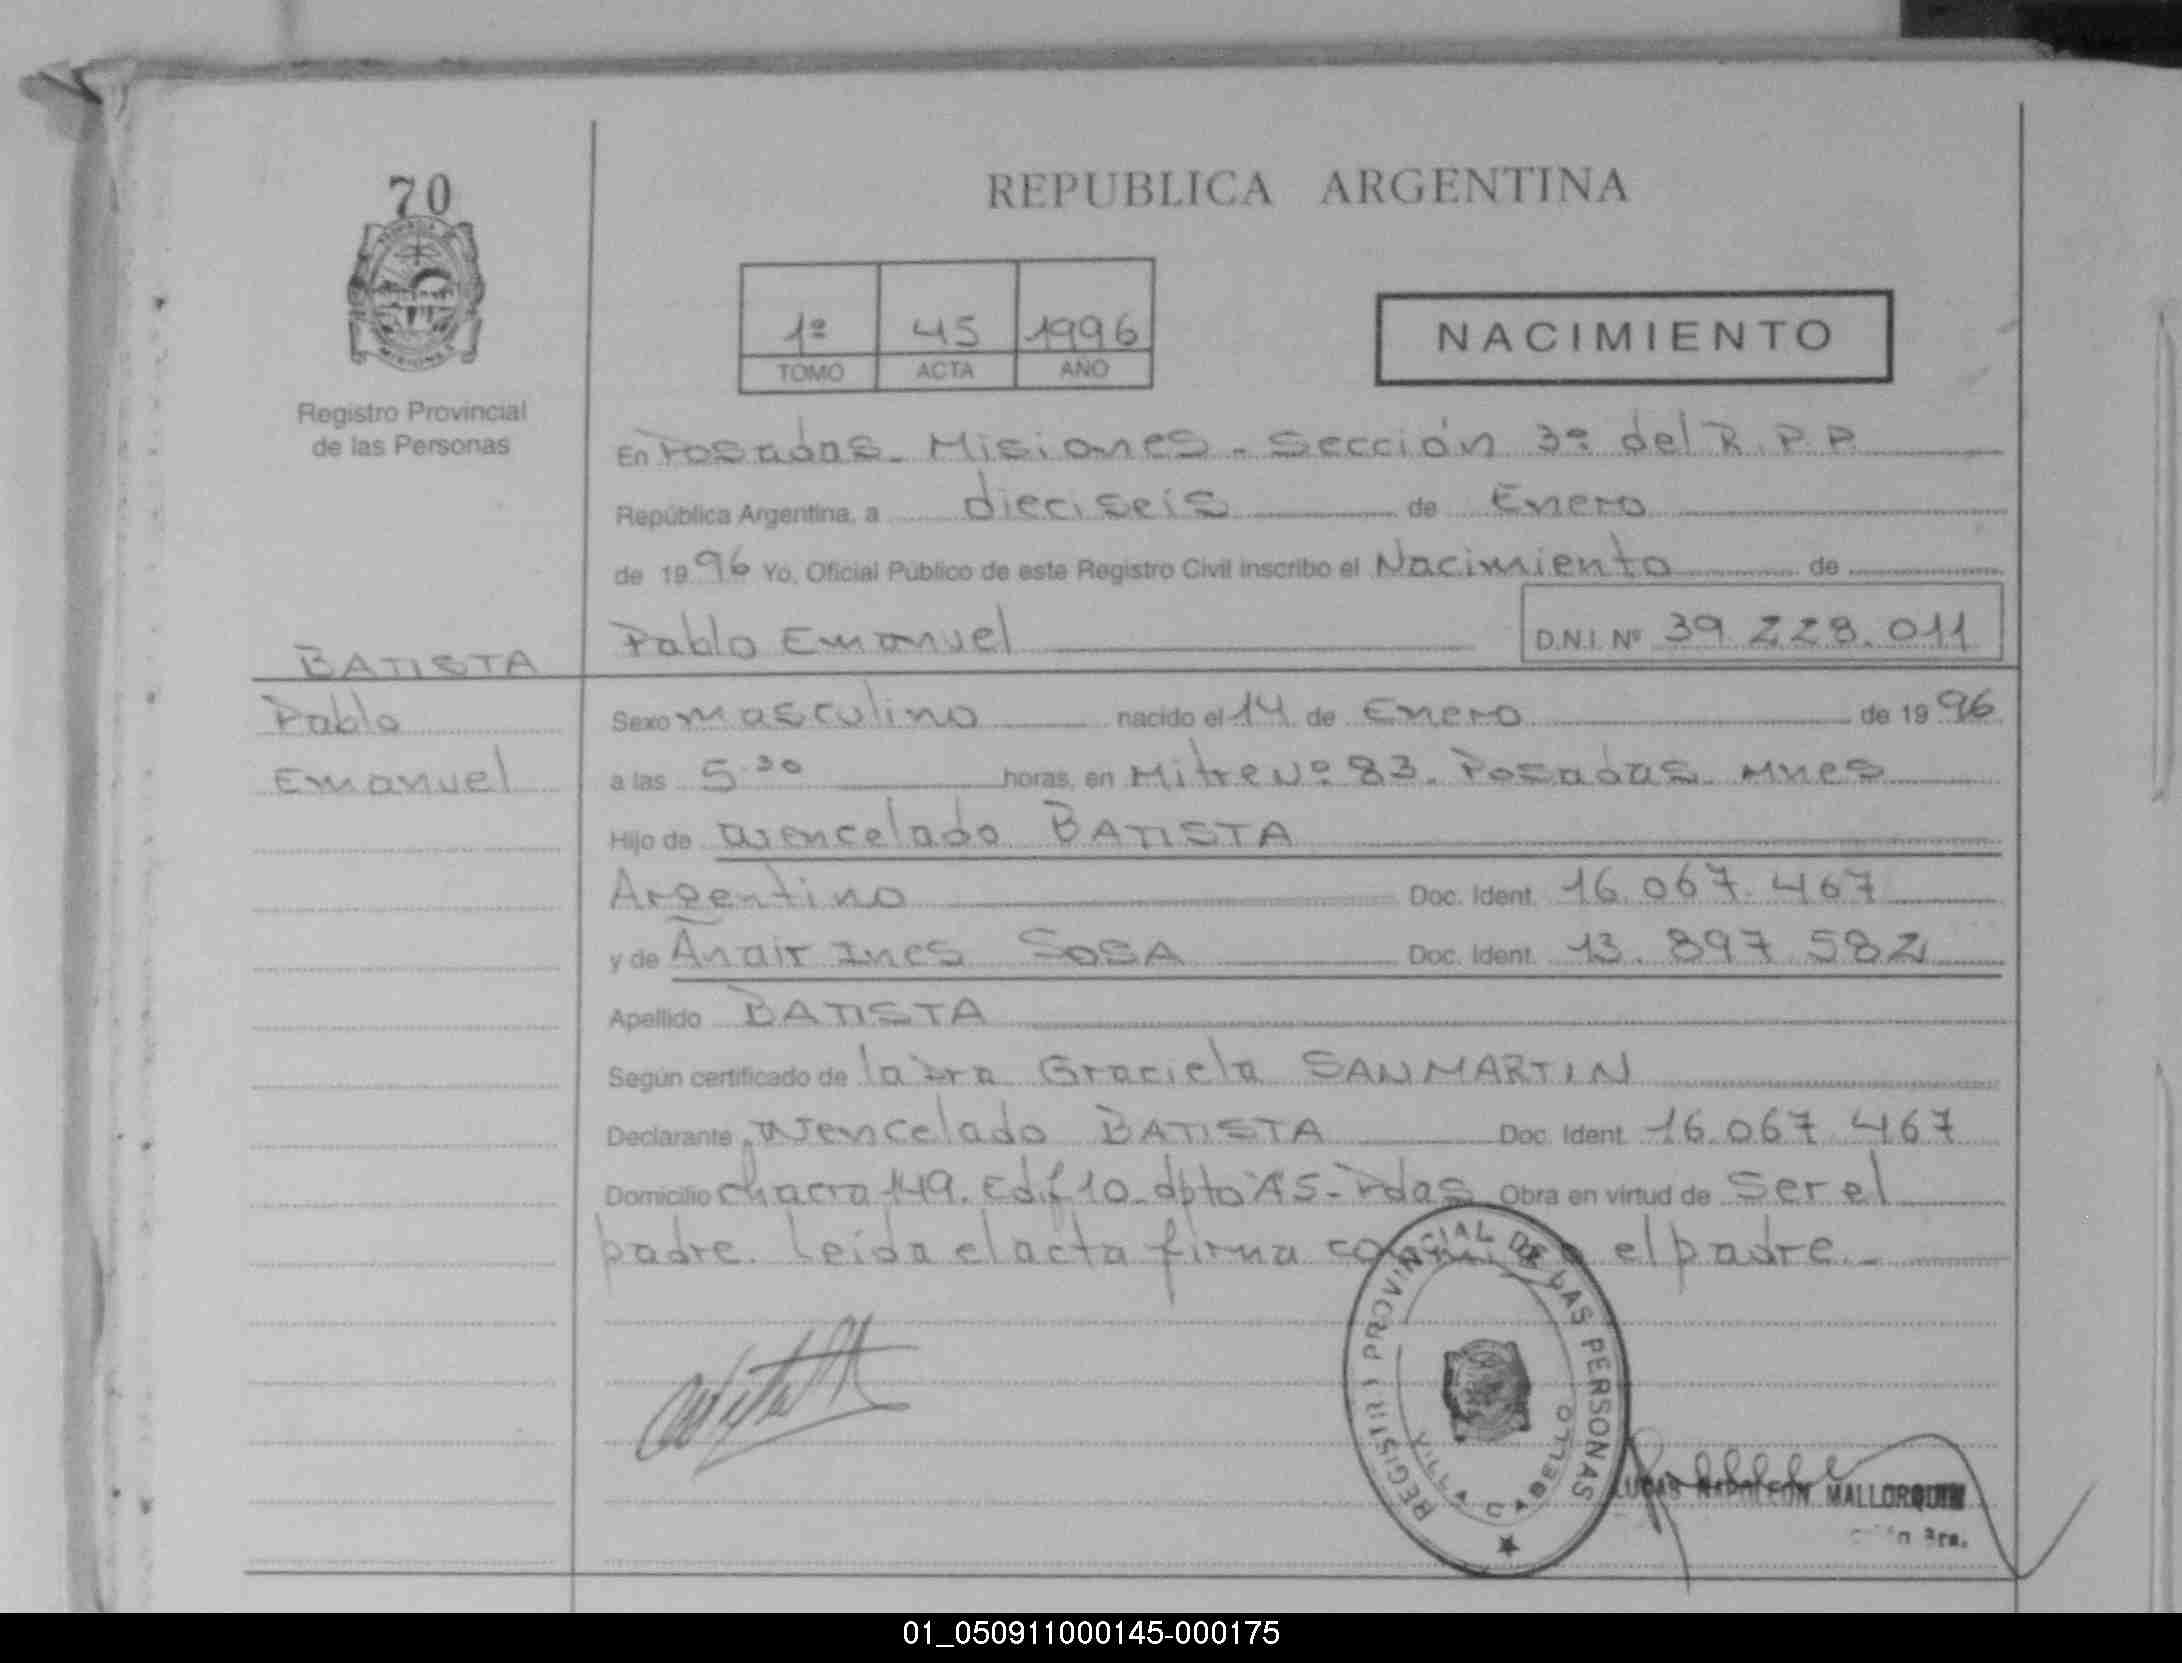 70
REPUBLICA ARGENTINA
1º 45 1996
TOMO ACTA AÑO
NACIMIENTO
Registro Provincial
de las Personas
En Posadas - Misiones - Sección 3º del R.P.P.
República Argentina, a dieciseis de Enero
de 1996 Yo, Oficial Público de este Registro Civil inscribo el Nacimiento de
Pablo Emanuel D.N.I. Nº 39.228.011
BATISTA
Pablo
Emanuel
Sexo masculino nacido el 14 de Enero de 1996
a las 5.30 horas, en Mitre Nº 83. Posadas. Mnes
Hijo de Wencelado BATISTA
Argentino Doc. Ident. 16.067.467
y de Anair Ines SOSA Doc. Ident. 13.897.582
Apellido BATISTA
Según certificado de la Dra Graciela SANMARTIN
Declarante Wencelado BATISTA Doc. Ident. 16.067.467
Domicilio chacra 149. Edif 10 - dpto A5 - Pdas Obra en virtud de Ser el
padre. Leida el acta firma el padre.-
REGISTRO PROVINCIAL DE LAS PERSONAS
VILLA CABELLO
LUCAS NAPOLEON MALLORQUIN
3ra.
01_050911000145-000175